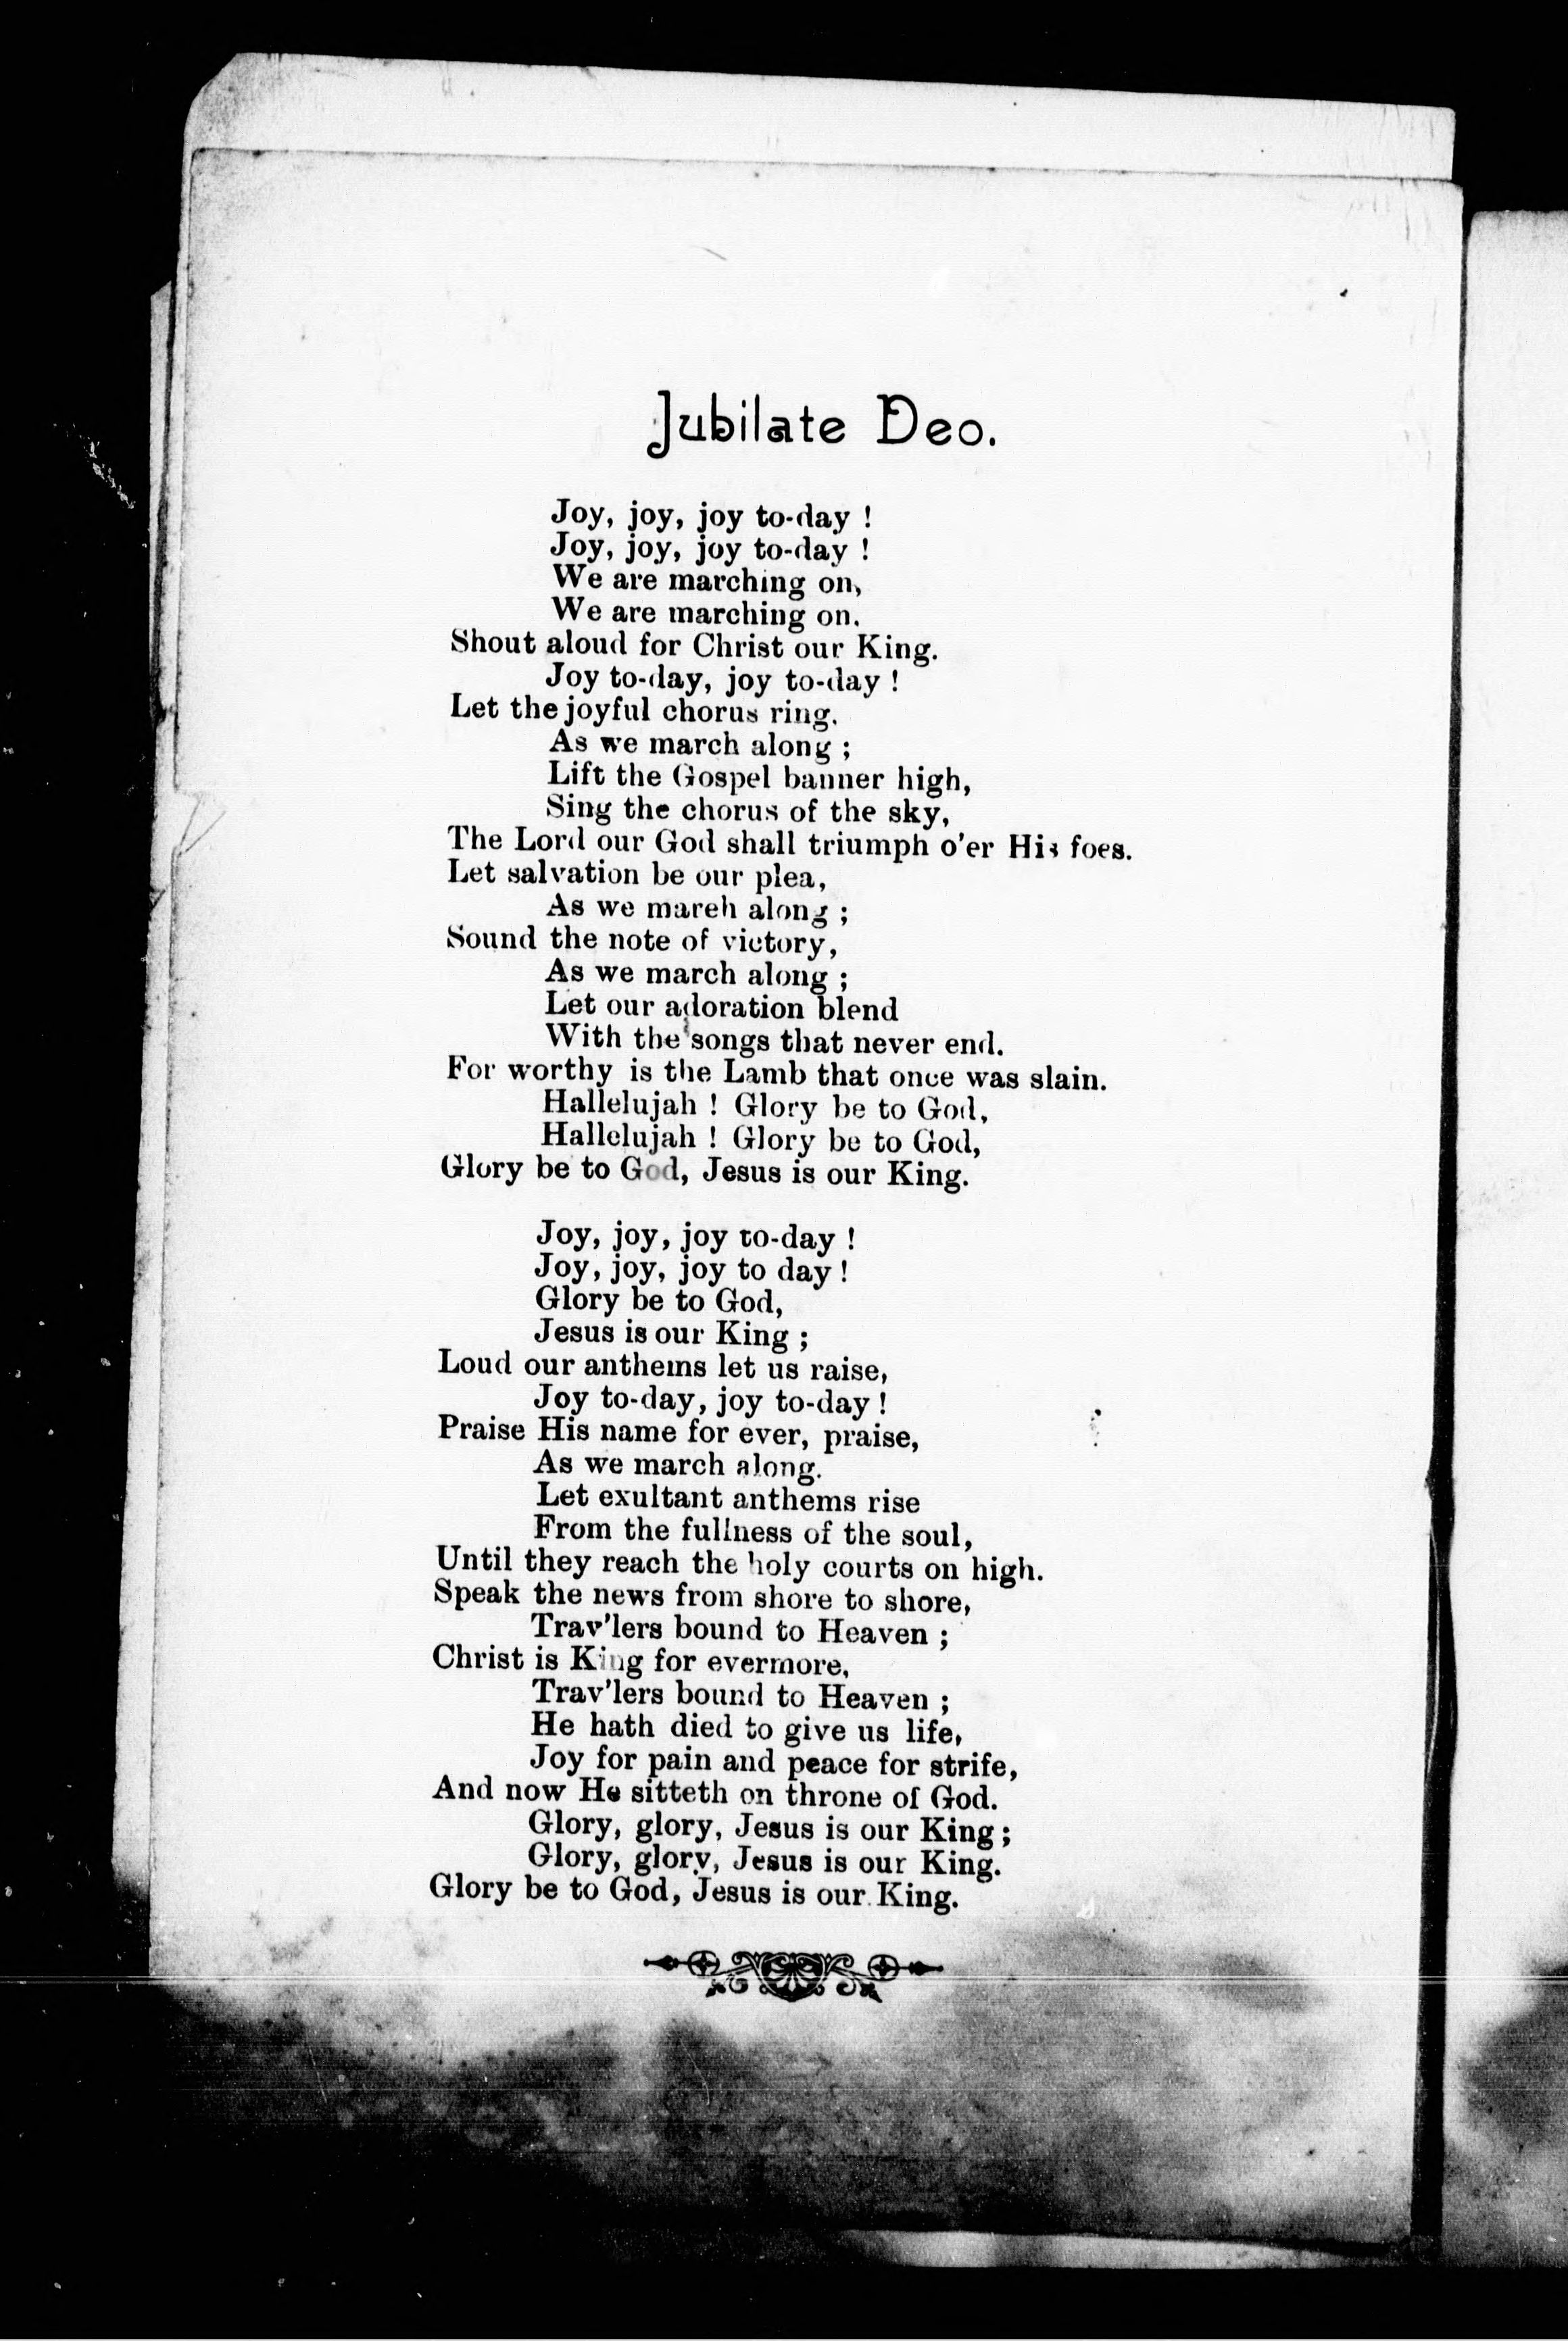 Jubilate Deo.
Joy, joy, joy to-day !
Joy, joy, joy to-day !
We are marching on,
We are marching on.
Shout aloud for Christ our King.
Joy to-day, joy to-day !
Let the joyful chorus ring.
As we march along ;
Lift the Gospel banner high,
Sing the chorus of the sky,
The Lord our God shall triumph o'er His foes.
Let salvation be our plea,
As we mareh along ;
Sound the note of victory,
As we march along ;
Let our adoration blend
With the songs that never end.
For worthy is the Lamb that once was slain.
Hallelujah ! Glory be to God,
Hallelujah ! Glory be to God,
Glory be to God, Jesus is our King.
Joy, joy, joy to-day !
Joy, joy, joy to day !
Glory be to God,
Jesus is our King ;
Loud our anthems let us raise,
Joy to-day, joy to-day !
Praise His name for ever, praise,
As we march along.
Let exultant anthems rise
From the fullness of the soul,
Until they reach the holy courts on high.
Speak the news from shore to shore,
Trav'lers bound to Heaven ;
Christ is King for evermore,
Trav'lers bound to Heaven ;
He hath died to give us life,
Joy for pain and peace for strife,
And now He sitteth on throne of God.
Glory, glory, Jesus is our King ;
Glory, glory, Jesus is our King.
Glory be to God, Jesus is our King.